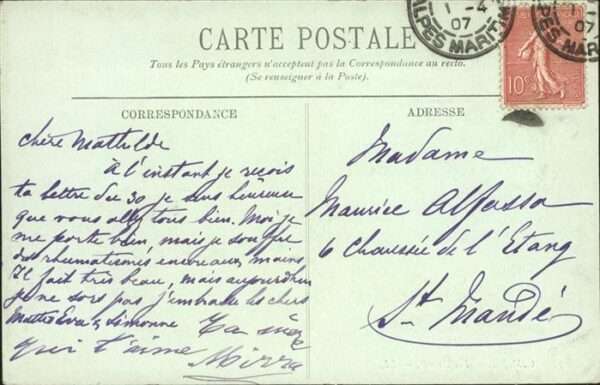 CARTE POSTALE
Tous les Pays étrangers n'acceptent pas la Correspondance au recto.
(Se renseigner à la Poste).
CORRESPONDANCE
chère Mathilde
à l'instant je reçois
ta lettre du 30 je suis heureuse
que vous allez tous bien. Moi je
me porte bien, mais je souffre
des rhumatismes encore aux mains
Il fait très beau, mais aujourd'hui
je ne sors pas j'embrasse les chers
Eva & Simonne Ta mère
qui t'aime Mirra
ADRESSE
Madame
Maurice Alfassa
6 Chaussée de l'Etang
St Mandé
1 -4
07
ALPES MARITIM
10c
07
PES MARI